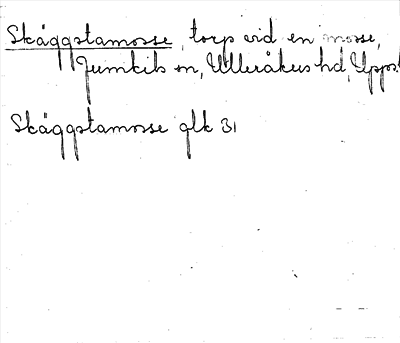 Skäggstamosse, torp vid en mosse,
Jumkils sn, Ulleråkers hd, Upps.
Skäggstamosse glk 31